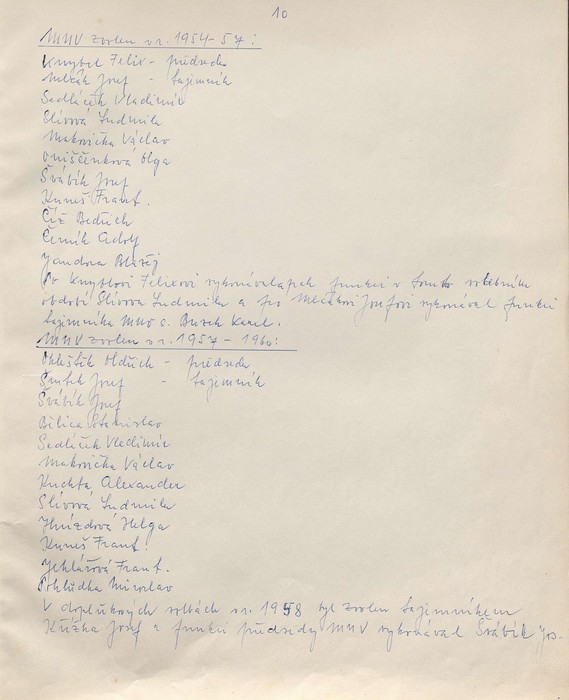 10
MNV zvolen v r. 1954-57:
Knybel Felix - předseda
Mlčák Josef - tajemník
Sedláček Vladimír
Slívová Ludmila
Makovička Václav
Oniščenková Olga
Švábík Josef
Kuneš Frant.
Číž Bedřich
Černík Adolf
Jandora Blažej
Po Knyblovi Felixovi vykonávala pak funkci v tomto volebním
období Slívová Ludmila a po Mlčákovi Josefovi vykonával funkci
tajemníka MNV s. Burek Karel.
MNV zvolen v r. 1957 - 1960:
Ohlištík Oldřich - předseda
Smtek Josef - tajemník
Švábík Josef
Bilica Stanislav
Sedláček Vladimír
Makovička Václav
Kuchta Alexander
Slívová Ludmila
Hnízdová Helga
Kuneš Frant.
Jehlářová Frant.
Pohlůdka Miroslav
V doplňkových volbách v r. 1958 byl zvolen tajemníkem
Křížka Josef a funkci předsedy MNV vykonával Švábík Jos.